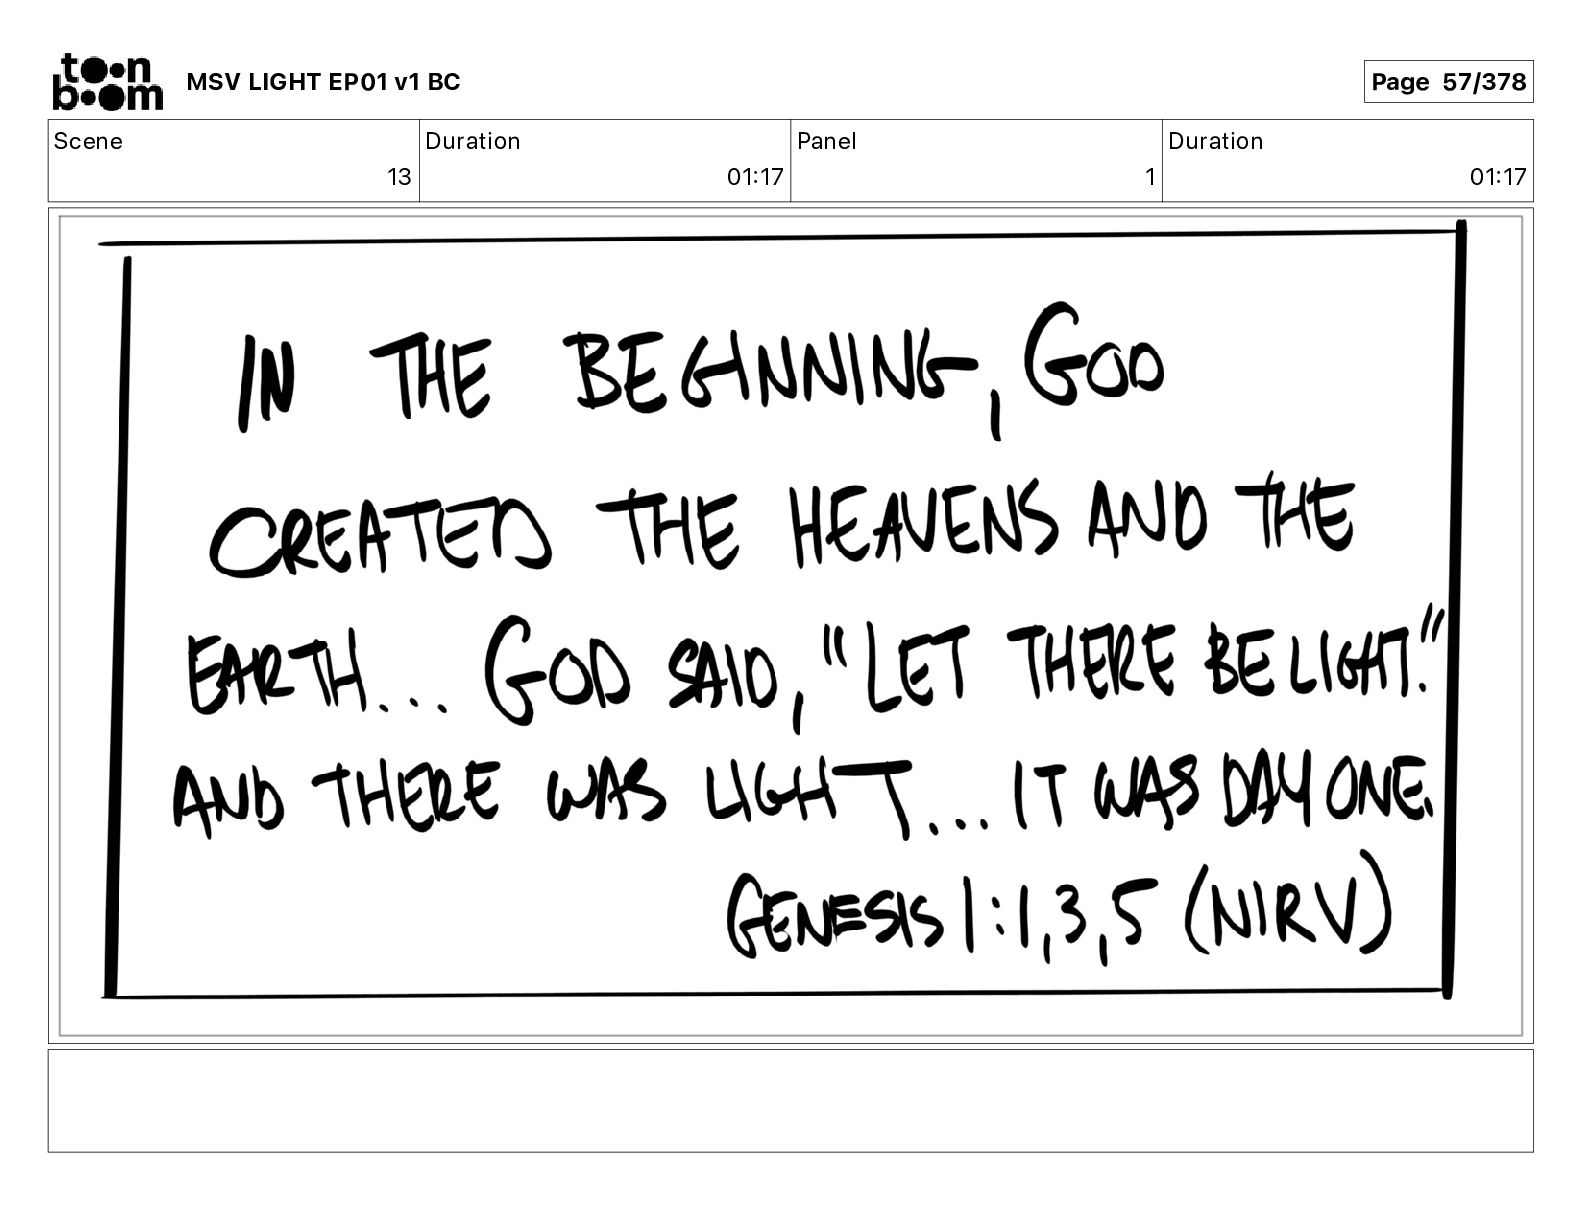 toon boom
MSV LIGHT EP01 v1 BC
Page 57/378
Scene
13
Duration
01:17
Panel
1
Duration
01:17
IN THE BEGINNING, GOD
CREATED THE HEAVENS AND THE
EARTH... GOD SAID, "LET THERE BE LIGHT."
AND THERE WAS LIGHT... IT WAS DAY ONE.
GENESIS 1:1,3,5 (NIRV)